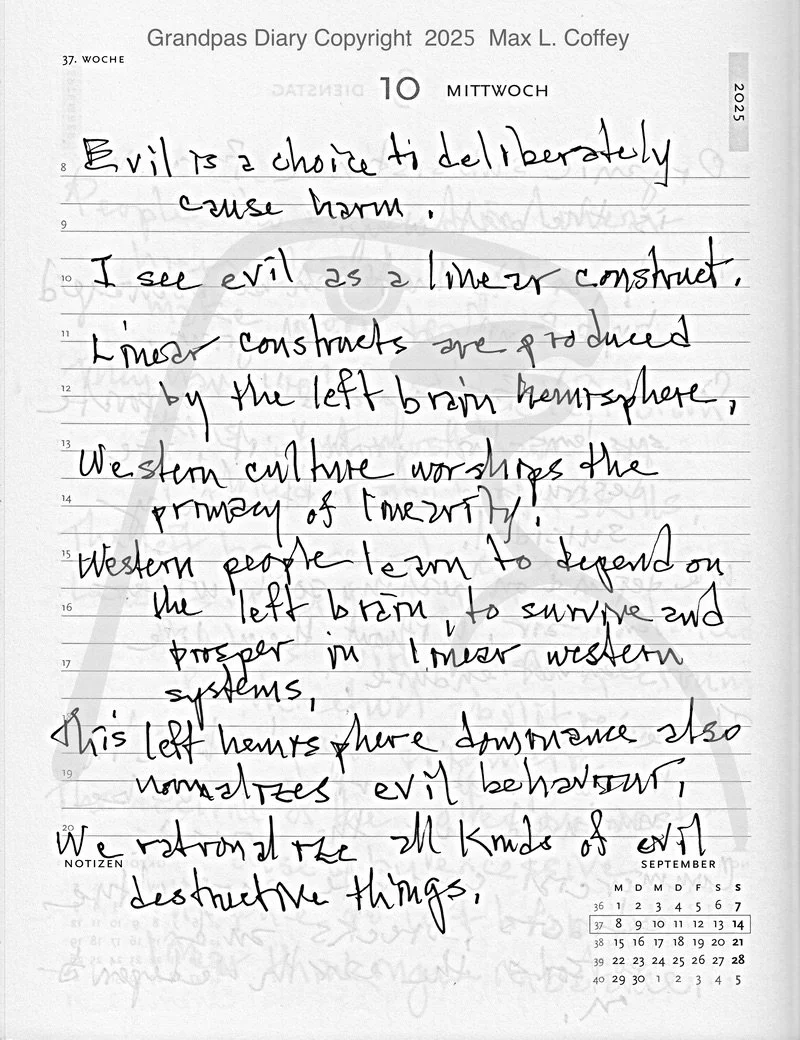 Grandpas Diary Copyright 2025 Max L. Coffey
37. WOCHE
10 MITTWOCH
2025
8 Evil is a choice to deliberately
cause harm.
9
10 I see evil as a linear construct.
11 Linear constructs are produced
12 by the left brain hemisphere,
13 Western culture worships the
14 primacy of linearity.
15 Western people learn to depend on
16 the left brain, to survive and
17 prosper in linear western
systems,
This left hemisphere dominance also
19 normalizes evil behaviour,
20 We rationalize all kinds of evil
NOTIZEN
destructive things.
SEPTEMBER
M D M D F S S
36 1 2 3 4 5 6 7
37 8 9 10 11 12 13 14
38 15 16 17 18 19 20 21
39 22 23 24 25 26 27 28
40 29 30 1 2 3 4 5